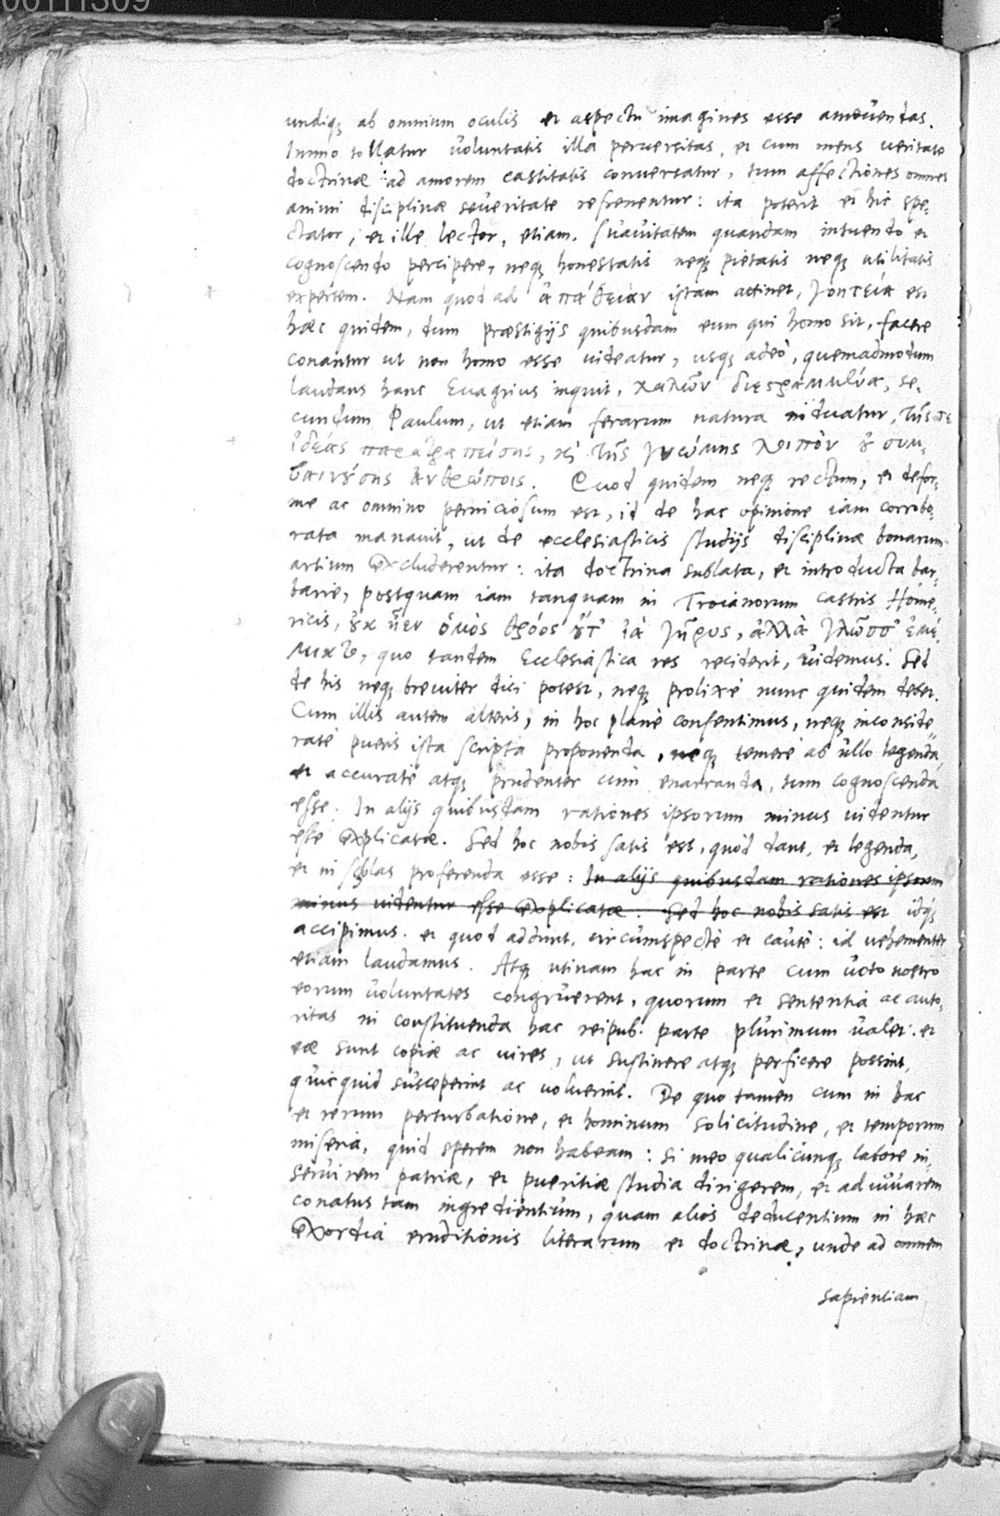 00111309
undiq; ab omnium oculis et aspectu imagines esse amovendas.
Immo tollatur voluntatis illa perversitas, et cum mens veritate
doctrinæ ad amorem castitatis convertatur, tum affectiones omnes
animi disciplinæ severitate refrenentur: ita poterit et hic spe-
ctator, et ille lector, etiam suavitatem quandam intuendo et
cognoscendo percipere, neq; honestatis neq; pietatis neq; utilitatis
expertem. Nam quod ad ἀπάθειαν istam attinet, γοητεία est
hæc quidem, dum præstigijs quibusdam eum qui homo sit, facere
conantur ut non homo esse videatur, usq; adeò, quemadmodum
laudans hanc Evagrius inquit, se-
cundum Paulum, ut etiam ferarum natura τῆς τε
ἰδέας παρατραπείσης, καὶ τῆς γνώμης λοιπὸν οὐ συμ-
βαινούσης ἀνθρώποις. Quod quidem neq; rectum, et defor-
me ac omnino perniciosum est, id de hac opinione iam corrobo-
rata manavit, ut de ecclesiasticis studijs disciplinæ bonarum
artium excluderentur: ita doctrina sublata, et introducta bar-
barie, postquam iam tanquam in Troianorum castris Home-
ricis, οὐκ ἦεν ὁμὸς θρόος οὐδ' ἴα γῆρυς, ἀλλὰ γλῶσσ' ἐμέ-
μικτο, quo tandem Ecclesiastica res reciderit, videmus. Sed
de his neq; breviter dici potest, neq; prolixè nunc quidem debet.
Cum illis autem alteris, in hoc planè consentimus, neq; inconside-
ratè pueris ista scripta proponenda, neq; temerè ab ullo legenda,
et accuratè atq; prudenter cum enarranda, tum cognoscenda
esse. In alijs quibusdam rationes ipsorum minus videntur
esse explicatæ. Sed hoc nobis satis est, quòd dant, et legenda,
et in scholas proferenda esse: In alijs quibusdam rationes ipsorum
minus videntur esse explicatæ. Sed hoc nobis satis est idq;
accipimus. et quod addunt, circumspectè et cautè: id vehementer
etiam laudamus. Atq; utinam hac in parte cum voto nostro
eorum voluntates congruerent, quorum et sententia ac auto-
ritas in constituenda hac reipub. parte plurimum valet. et
eæ sunt copiæ ac vires, ut sustinere atq; perficere possint,
quicquid susceperint ac voluerint. De quo tamen cum in hac
et rerum perturbatione, et hominum solicitudine, et temporum
miseria, quid sperem non habeam: si meo qualicunq; labore in-
servirem patriæ, et pueritiæ studia dirigerem, et adiuvarem
conatus tam ingredientium, quam alios deducentium in hæc
exordia eruditionis literarum et doctrinæ, unde ad omnem
sapientiam